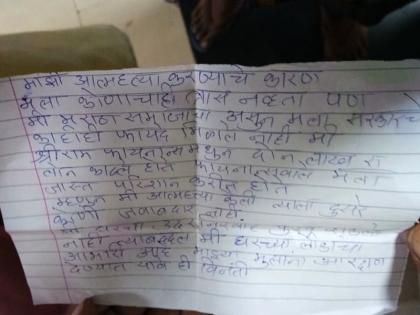 माझे आत्महत्या करण्याचे कारण
मला कोणाचाही त्रास नव्हता पण
मी मराठा समाजाचा असुन मला सरकारचा
काहीही फायदा मिळाल नाही मी
श्रीराम फायनान्स मधुन दोन लाख रु
लोन काढल होत फायनान्सवाले मला
जास्त परेशान करीत होते
म्हणुन मी आत्महत्या केली त्याला दुसरे
कुणी जवाबदार नाही
नाही त्याबद्दल मी घरच्या लोकांचा
आभारी आहे माझ्या मुलांना आरक्षण
देण्यात यावे ही विनंती